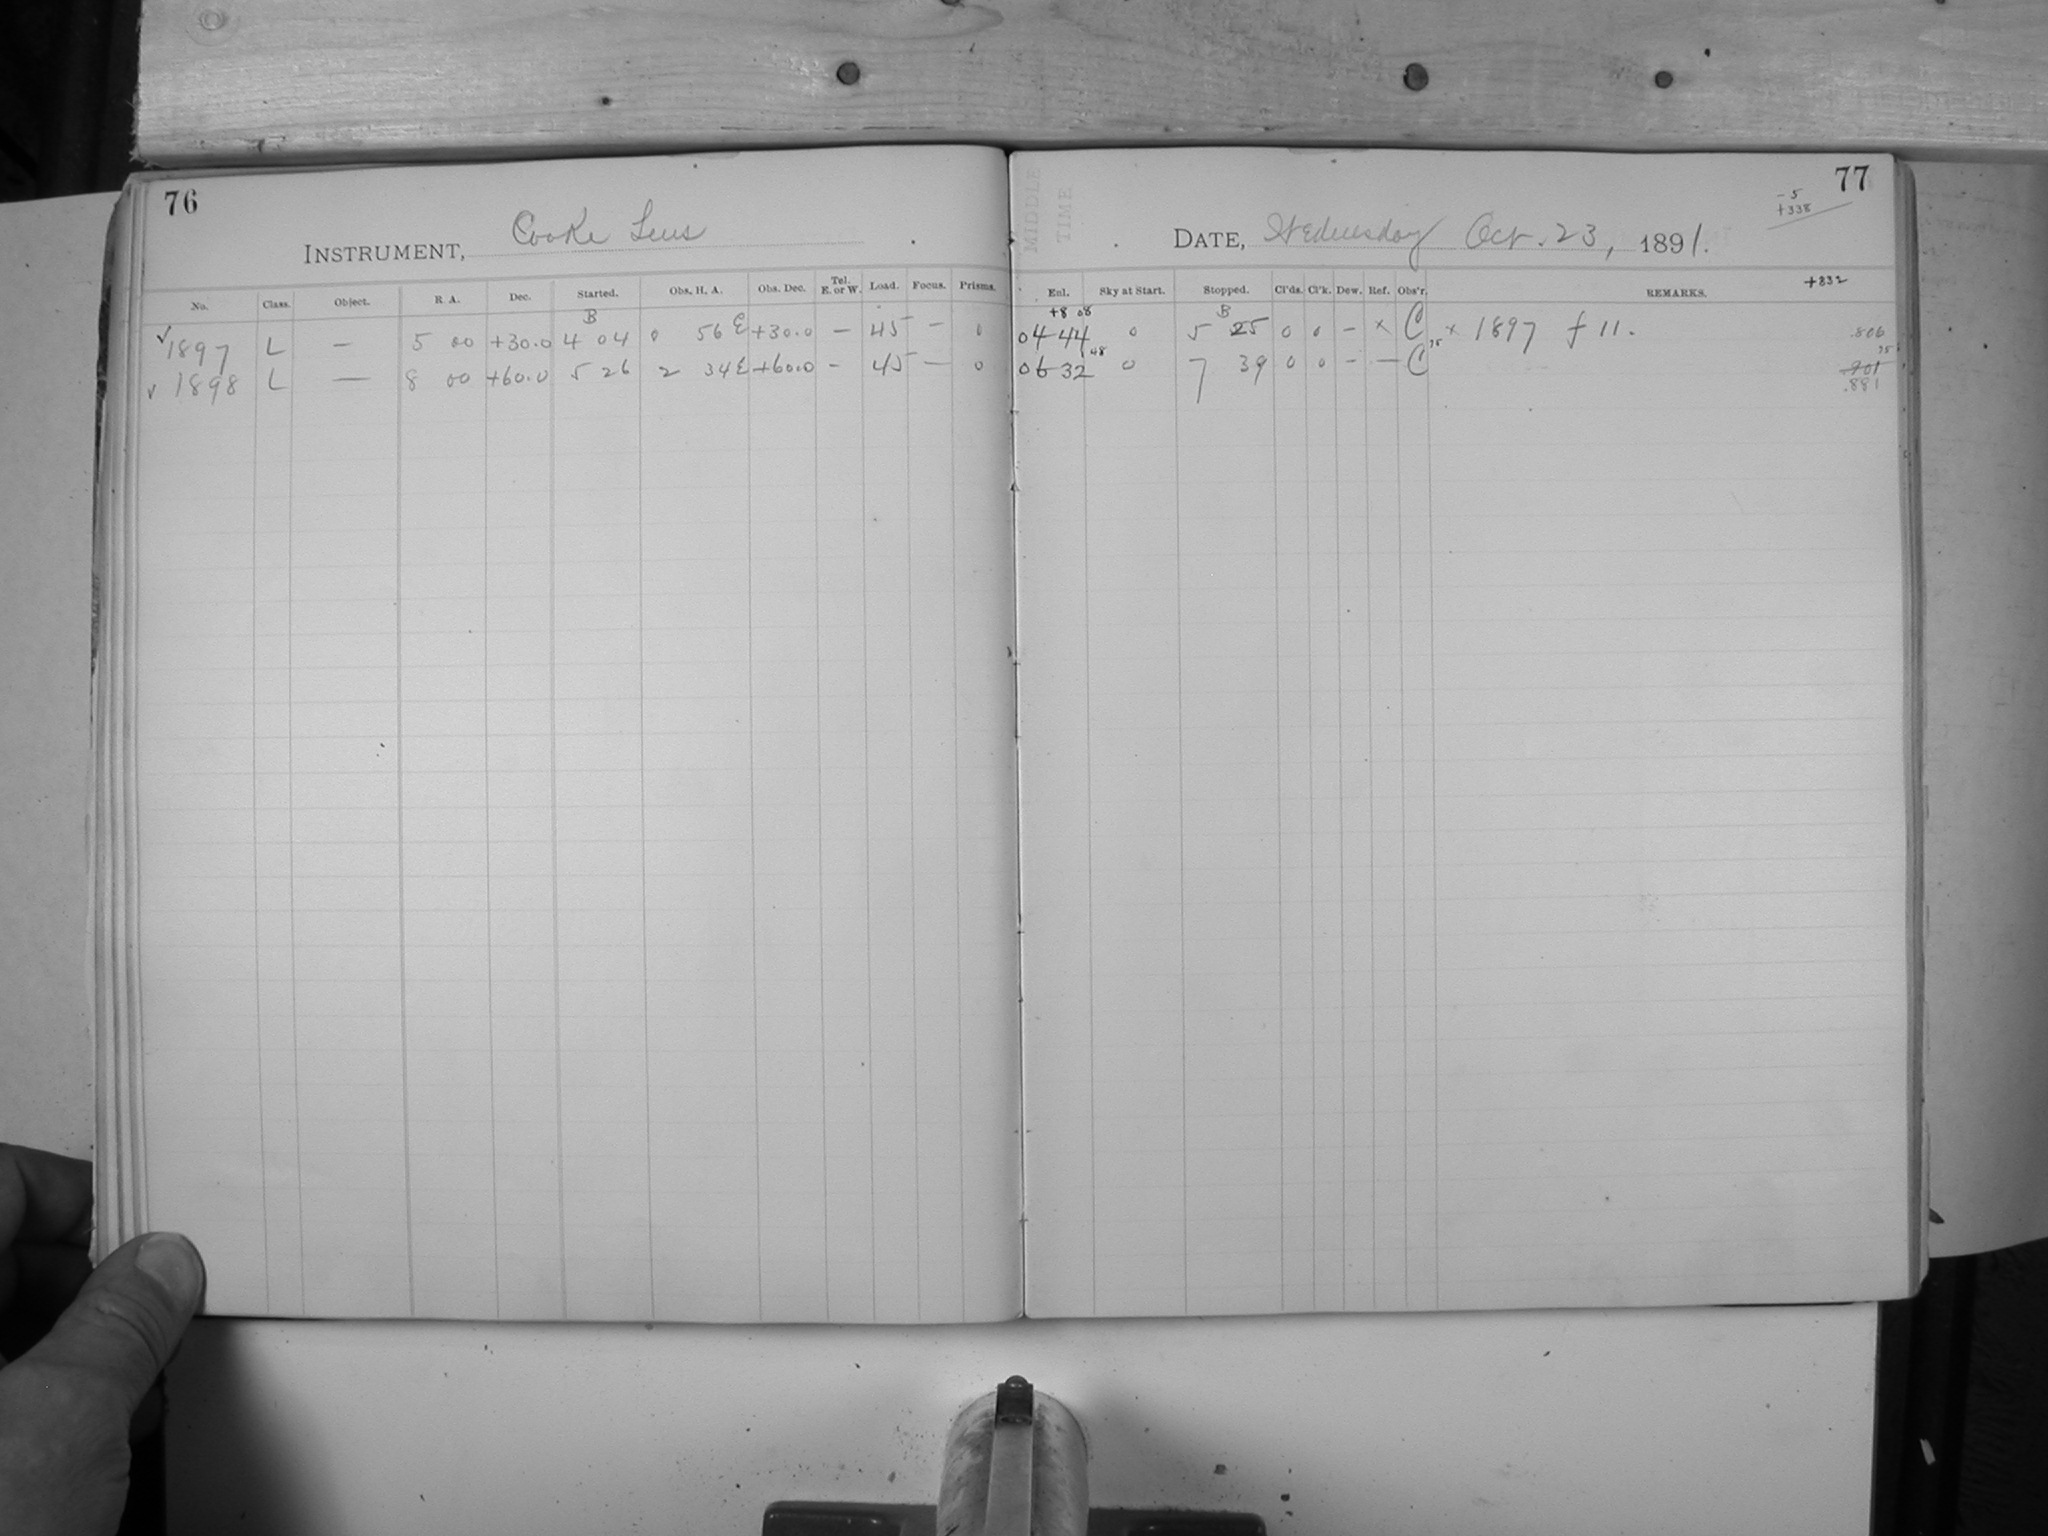 76
INSTRUMENT, Cooke Lens
No. Class. Object. R. A. Dec. Started. Obs. H. A. Obs. Dec. Tel. E. or W. Load. Focus. Prisms.
B
✓ 1897 L — 5 00 +30.0 4 04 0 56 E +30.0 — 45 — 0
✓ 1898 L — 8 00 +60.0 5 26 2 34 E +60.0 — 45 — 0
77
- 5
+338
MIDDLE
TIME
DATE, Wednesday Oct. 23, 1891.
+832
Enl. Sky at Start. Stopped. Cl'ds. Cl'k. Dew. Ref. Obs'r. REMARKS.
+8 08 B
04 44 0 5 25 0 0 — x C x 1897 f 11. .806
06 32 48 0 7 39 0 0 — — C 75 .901 75
.881